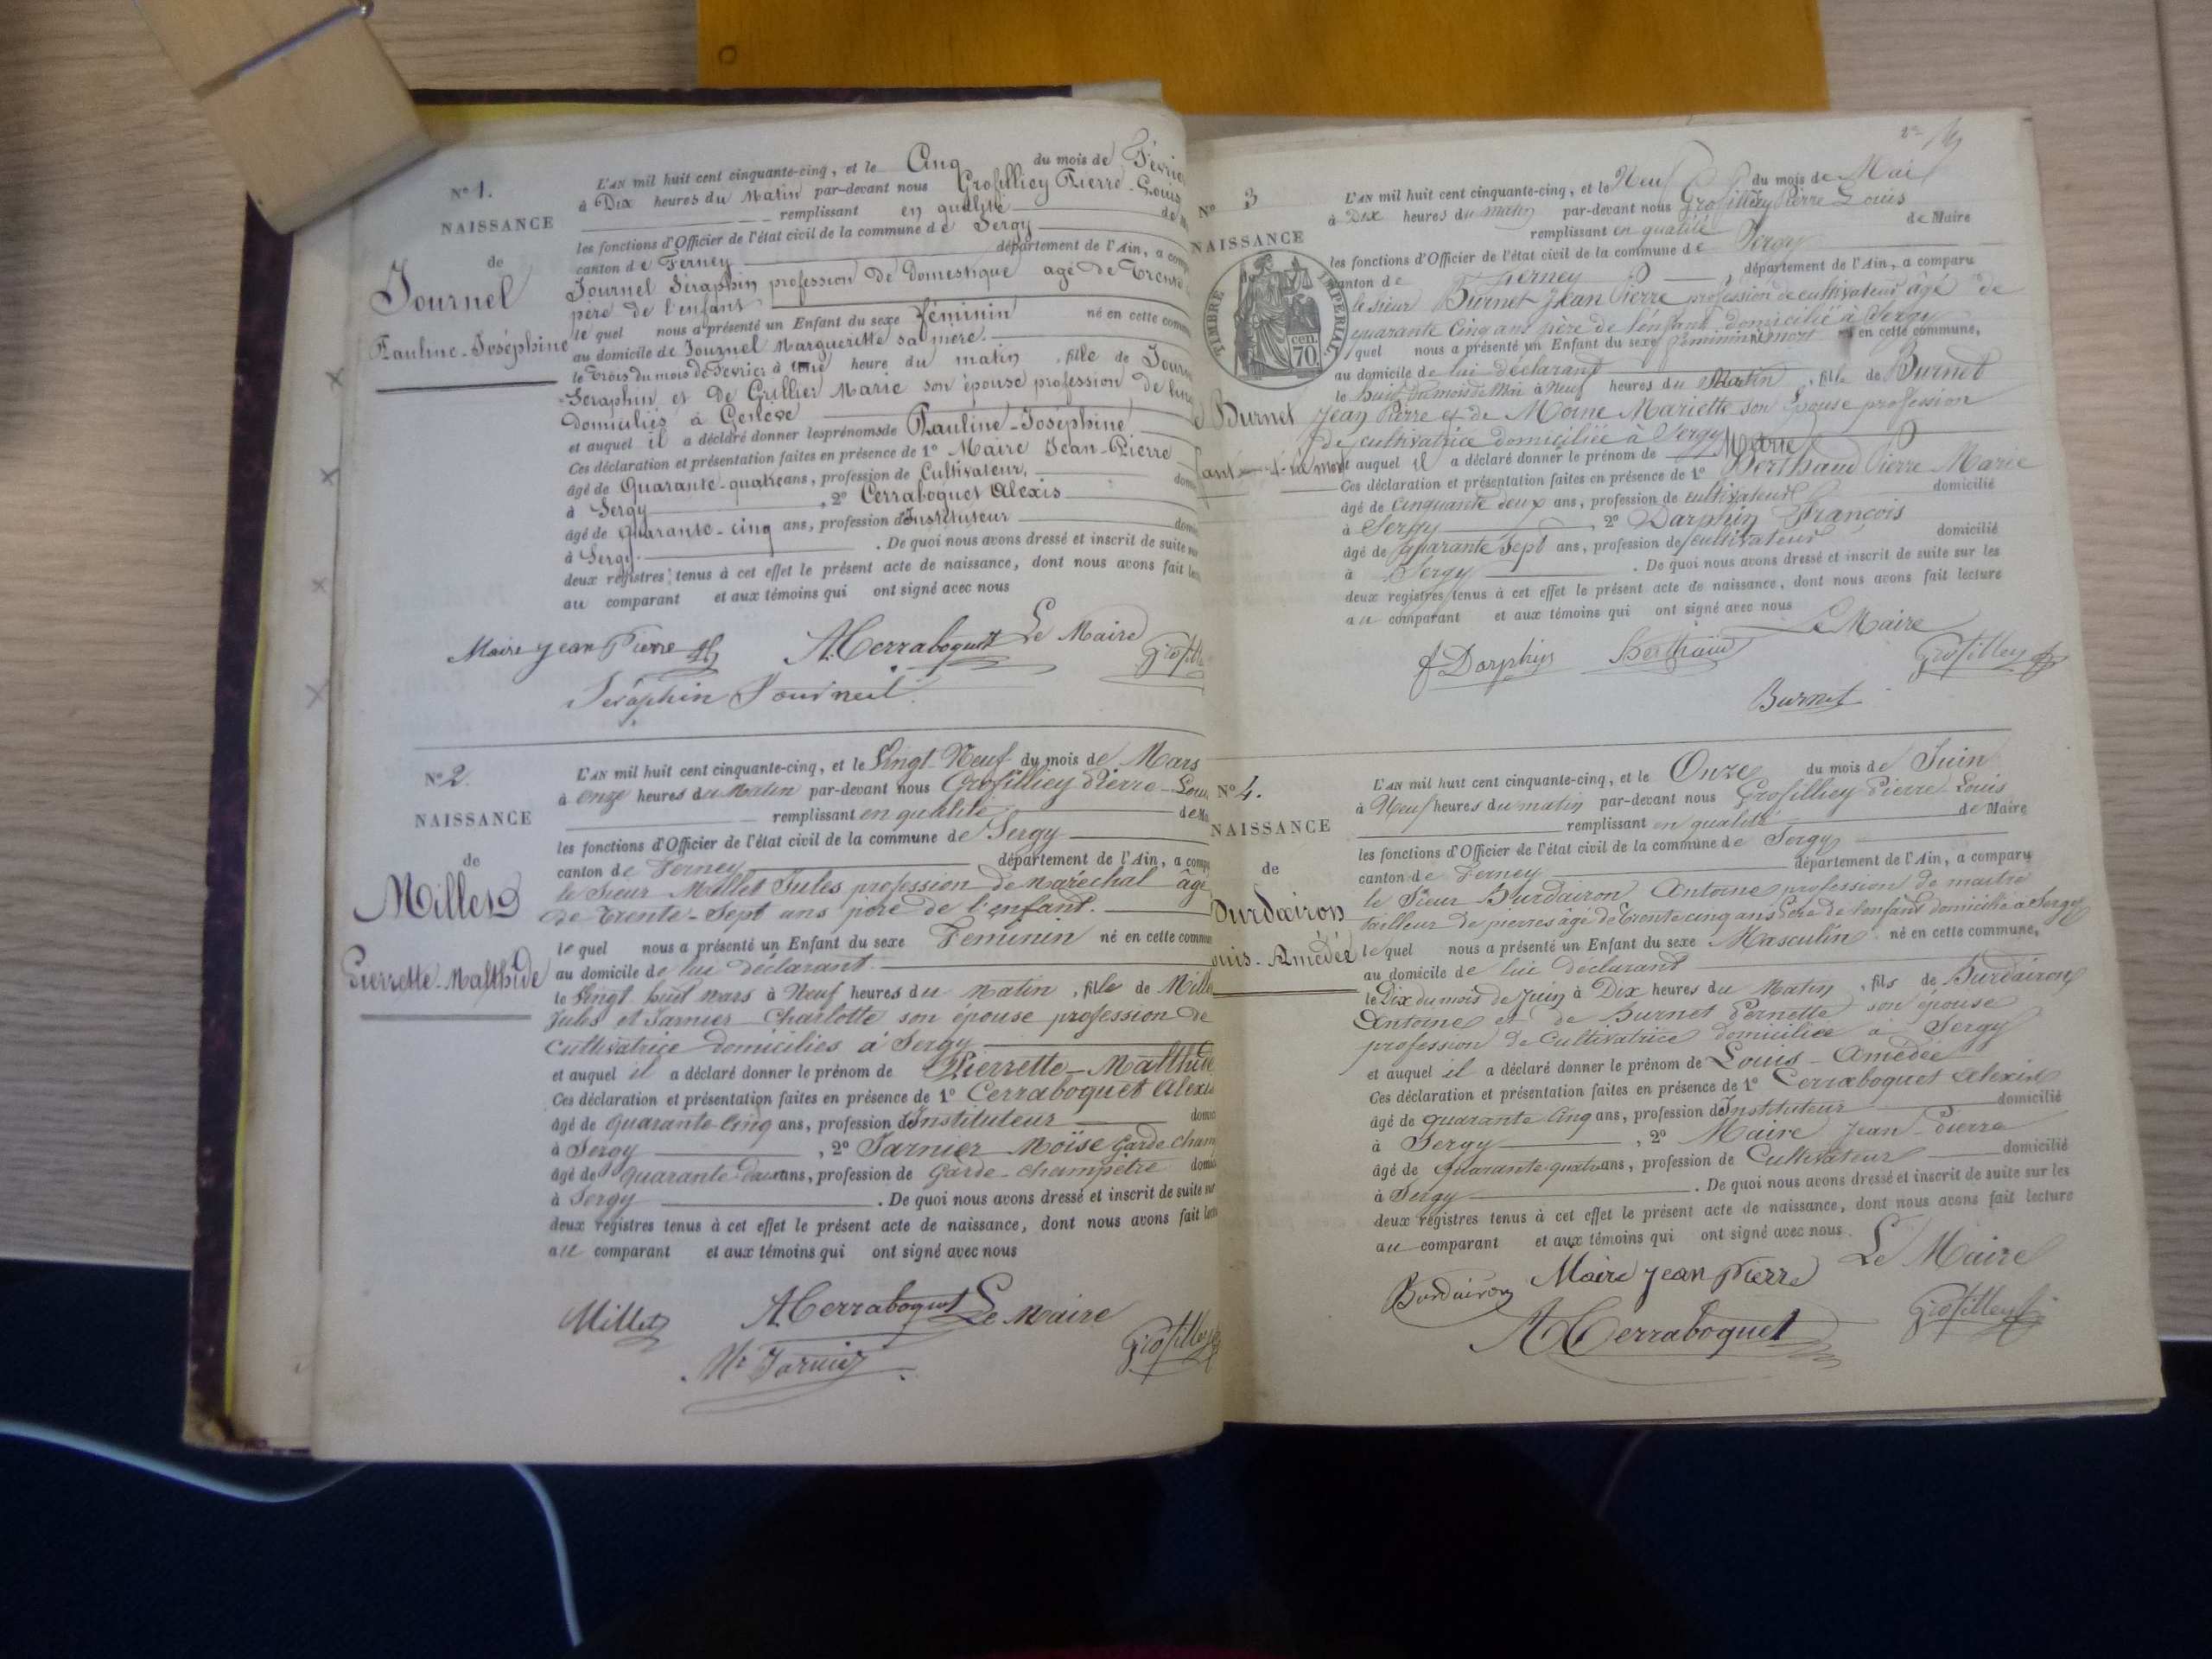 N° 1.
NAISSANCE
de
Journel
Pauline-Joséphine
L'AN mil huit cent cinquante-cinq, et le Cinq du mois de Févrie
à Dix heures du Matin par-devant nous Grosfilliey Pierre-Louis
remplissant en qualité de M
les fonctions d'Officier de l'état civil de la commune de Sergy
canton de Ferney département de l'Ain, a comp
Journel Séraphin profession de Domestique agé de Trente
père de l'enfant
le quel nous a présenté un Enfant du sexe féminin né en cette comm
au domicile de Journel Marguerite sa mère.
le Trois du mois de Fevrier à une heure du matin, fille de Journ
Séraphin et de Grillier Marie son épouse profession de
domiciliés à Genève
et auquel il a déclaré donner les prénoms de Pauline-Joséphine
Ces déclaration et présentation faites en présence de 1° Maire Jean-Pierre
âgé de Quarante-quatre ans, profession de Cultivateur, domi
à Sergy, 2° Cerraboquet Alexis
âgé de Quarante-cinq ans, profession d'Instituteur domi
à Sergy. De quoi nous avons dressé et inscrit de suite sur
deux registres tenus à cet effet le présent acte de naissance, dont nous avons fait lec
au comparant et aux témoins qui ont signé avec nous
Maire jean Pierre A. Cerraboquet Le Maire
Séraphin Journeil Grosfille
N° 2.
NAISSANCE
de
Millet
Pierrette-Malthide
L'AN mil huit cent cinquante-cinq, et le Vingt-Neuf du mois de Mars
à onze heures du Matin par-devant nous Grosfilliey Pierre-Lou
remplissant en qualité de Ma
les fonctions d'Officier de l'état civil de la commune de Sergy
canton de Ferney département de l'Ain, a comp
le Sieur Millet Jules profession de Maréchal âgé
de Trente-Sept ans père de l'enfant.
le quel nous a présenté un Enfant du sexe Feminin né en cette commun
au domicile de lui déclarant.
le Vingt huit Mars à Neuf heures du Matin, fille de Mille
Jules et Jarnier Charlotte son épouse profession de
Cultivatrice domiciliés à Sergy
et auquel il a déclaré donner le prénom de Pierrette-Malthide
Ces déclaration et présentation faites en présence de 1° Cerraboquet Alexis
âgé de quarante-Cinq ans, profession d'Instituteur domici
à Sergy, 2° Jarnier Moïse Garde Cham
âgé de quarante deux ans, profession de Garde-champêtre domici
à Sergy. De quoi nous avons dressé et inscrit de suite sur
deux registres tenus à cet effet le présent acte de naissance, dont nous avons fait lectu
au comparant et aux témoins qui ont signé avec nous
Millet A. Cerraboquet Le Maire
Mr Jarnier Grosfilley
N° 3
NAISSANCE
TIMBRE IMPÉRIAL
70 cen.
Burnet
fant mort
L'AN mil huit cent cinquante-cinq, et le Neuf du mois de Mai
à Dix heures du matin par-devant nous Grosfilliey Pierre Louis
remplissant en qualité de Maire
les fonctions d'Officier de l'état civil de la commune de Sergy
canton de Ferney, département de l'Ain, a comparu
le sieur Burnet Jean Pierre profession de cultivateur âgé de
quarante Cinq ans père de l'enfant domicilié à Sergy
quel nous a présenté un Enfant du sexe féminin né mort en cette commune,
au domicile de lui déclarant
le huit du mois de Mai à Neuf heures du Matin, fille de Burnet
Jean Pierre et de Moine Mariette son Epouse profession
de cultivatrice domiciliée à Sergy
et auquel il a déclaré donner le prénom de Marie
Ces déclaration et présentation faites en présence de 1° Berthaud Pierre Marie
âgé de cinquante deux ans, profession de cultivateur domicilié
à Sergy, 2° Darphin François
âgé de quarante Sept ans, profession de cultivateur domicilié
à Sergy. De quoi nous avons dressé et inscrit de suite sur les
deux registres tenus à cet effet le présent acte de naissance, dont nous avons fait lecture
au comparant et aux témoins qui ont signé avec nous
Le Maire
f Darphin Berthaud Grosfilley
Burnet
N° 4.
NAISSANCE
de
Burdairon
ouis-Amédée
L'AN mil huit cent cinquante-cinq, et le Onze du mois de Juin
à Neuf heures du matin par-devant nous Grosfilliey Pierre-Louis
remplissant en qualité de Maire
les fonctions d'Officier de l'état civil de la commune de Sergy
canton de Ferney département de l'Ain, a comparu
le Sieur Burdairon Antoine profession de maitre
tailleur de pierres âgé de Trente cinq ans Père de l'enfant domicilié à Sergy
le quel nous a présenté un Enfant du sexe Masculin né en cette commune,
au domicile de lui déclarant
le Dix du mois de Juin à Dix heures du Matin, fils de Burdairon
Antoine et de Burnet Pernette son épouse
profession de Cultivatrice domiciliée à Sergy
et auquel il a déclaré donner le prénom de Louis-Amédée
Ces déclaration et présentation faites en présence de 1° Cerraboquet Alexis
âgé de quarante Cinq ans, profession d'Instituteur domicilié
à Sergy, 2° Maire Jean-Pierre
âgé de Quarante quatre ans, profession de Cultivateur domicilié
à Sergy. De quoi nous avons dressé et inscrit de suite sur les
deux registres tenus à cet effet le présent acte de naissance, dont nous avons fait lecture
au comparant et aux témoins qui ont signé avec nous.
Burdairon Maire jean Pierre Le Maire
A Cerraboquet Grosfilley